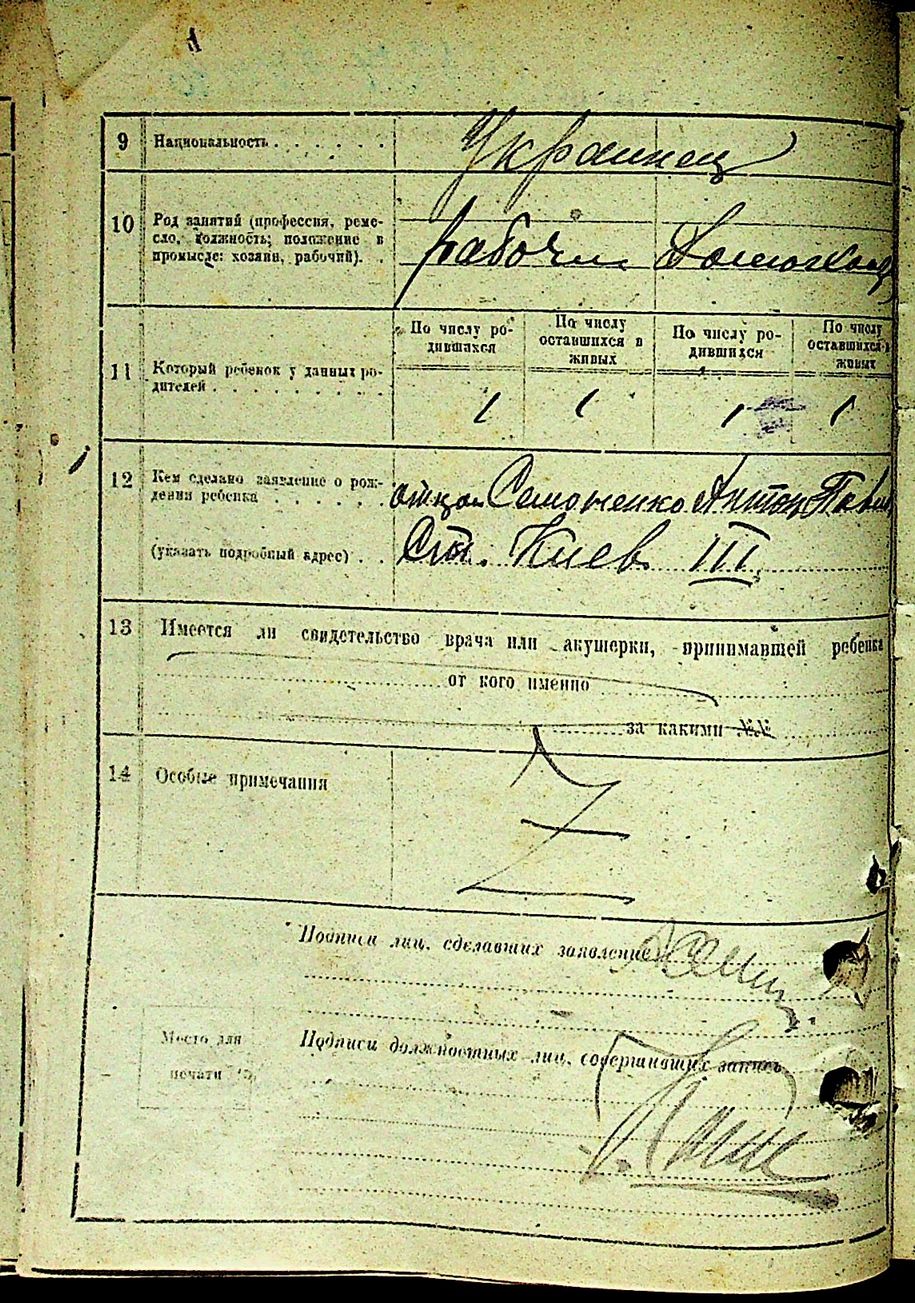 9 Национальность . . . . . . . Украинец
10 Род занятий (профессия, реме-
сло, должность; положение в
промысле: хозяин, рабочий). .
рабочий Домохоз
11 Который ребенок у данных ро-
дителей . . . . . . . . . .
По числу ро-
дившихся
По числу
оставшихся в
живых
По числу ро-
дившихся
По число
оставшихся в
живых
1 1 1 1
12 Кем сделано заявление о рож-
дении ребенка . . . . .
отцом Антон Павл
(указать подробный адрес) . . Ст. Киев III
13 Имеется ли свидетельство врача или акушерки, принимавшей ребенка
от кого именно
за какими №№
14 Особые примечания
Z
Подписи лиц, сделавших заявление
Место для
печати
Подписи должностных лиц, совершивших запись